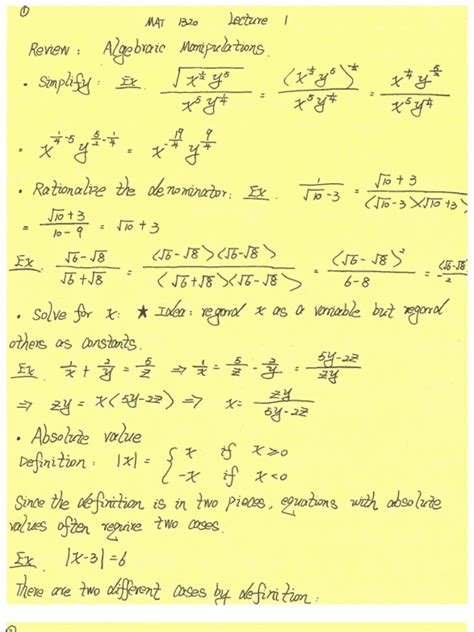 ①
MAT 1320 Lecture 1
Review: Algebraic Manipulations.
• Simplify: Ex. √(x^½ y⁵) / (x⁵ y^¼) = (x^½ y⁵)^½ / (x⁵ y^¼) = x^¼ y^(5/2) / (x⁵ y^¼)
= x^(¼-5) y^(5/2-¼) = x^(-19/4) y^(9/4)
• Rationalize the denominator: Ex. 1/(√10-3) = (√10+3)/((√10-3)(√10+3)
= (√10+3)/(10-9) = √10+3
Ex. (√6-√8)/(√6+√8) = (√6-√8)(√6-√8)/((√6+√8)(√6-√8)) = (√6-√8)²/(6-8) = (√6-√8)/-2
• Solve for x: ★ Idea: regard x as a variable but regard
others as constants.
Ex. 1/x + 2/y = 5/z ⇒ 1/x = 5/z - 2/y = (5y-2z)/(zy)
⇒ zy = x(5y-2z) ⇒ x = zy/(5y-2z)
• Absolute value
Definition: |x| = { x if x≥0
-x if x<0
Since the definition is in two pieces, equations with absolute
values often require two cases.
Ex. |x-3|=6
There are two different cases by definition: